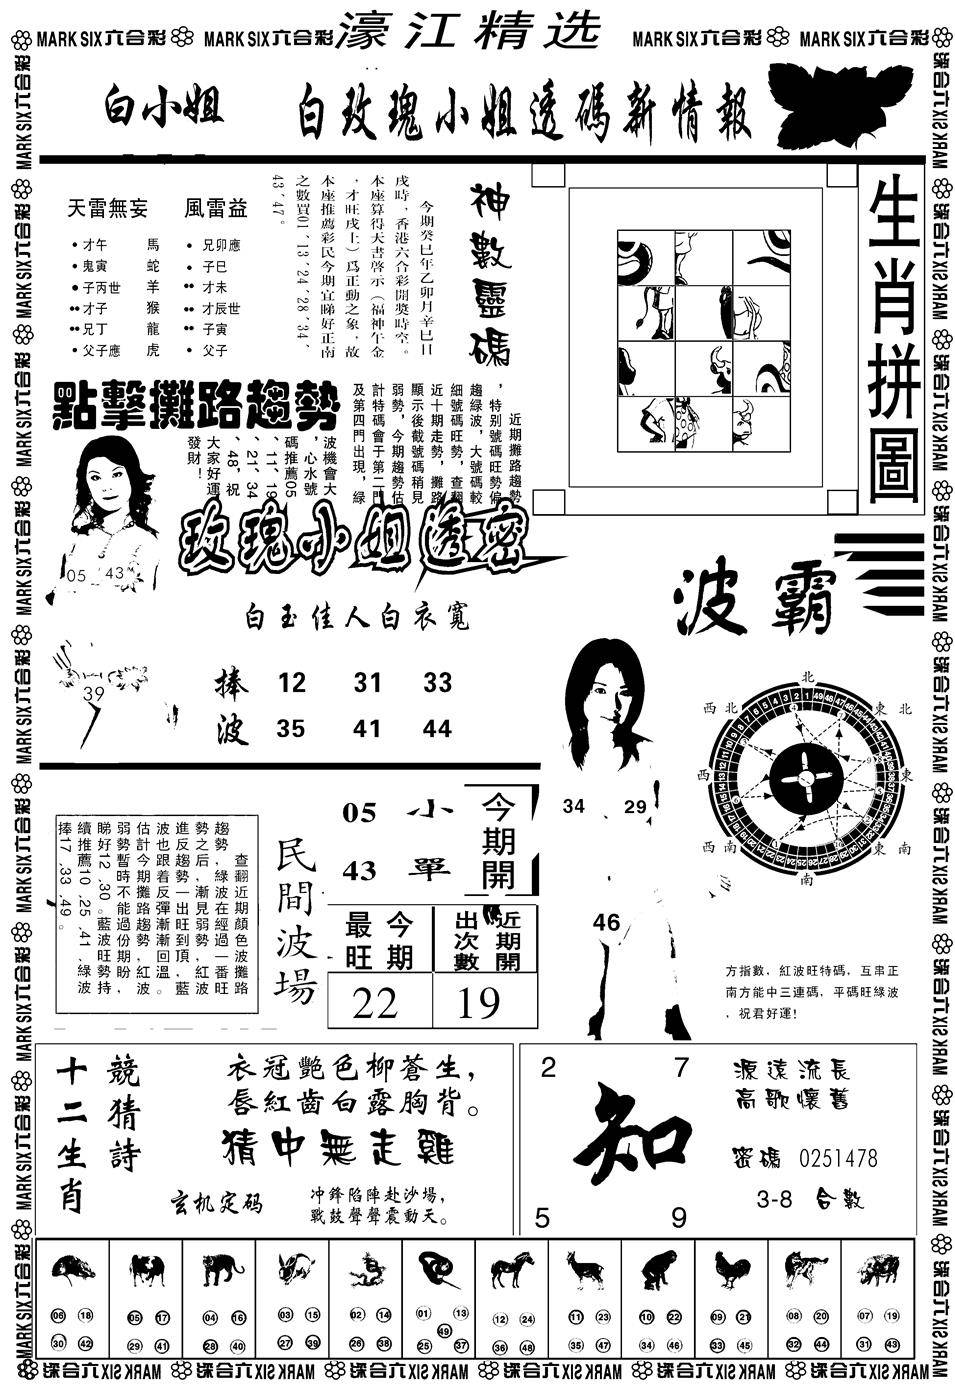 MARK SIX六合彩 MARK SIX六合彩 濠江精选 MARK SIX六合彩 MARK SIX六合彩
白小姐 白玫瑰小姐透碼新情報
天雷無妄 風雷益
•才午 馬 •兄卯應
•鬼寅 蛇 •子巳
•子丙世 羊 ••才未
••才子 猴 ••才辰世
••兄丁 龍 ••子寅
•父子應 虎 •父子
神數靈碼
今期癸巳年乙卯月辛巳日
戌時，香港六合彩開獎時空。
本座算得天書啓示（福神午金
，才旺戌土）爲正動之象，故
本座推薦彩民今期宜睇好正南
之數買01′13′24′28′34′
43′47。
生肖拼圖
點擊攤路趨勢
近期攤路趨勢
，特别號碼旺勢偏
趨緑波，大號碼較
細號碼旺勢，查翻
近十期走勢，攤路
顯示後截號碼稍見
弱勢，今期趨勢估
計特碼會于第二門
及第四門出現，緑
波機會大
，心水號
碼推薦05
、11、19
、21、34
、48，祝
大家好運
發財！
05 43
39
玫瑰小姐透密
白玉佳人白衣寬
捧波
12 31 33
35 41 44
波霸
34 29
46
北
東北
東
東南
南
西南
西
西北
方指數，紅波旺特碼，互串正
南方能中三連碼，平碼旺緑波
，祝君好運！
查翻近期顏色波攤路
趨勢，緑波在經過一番旺
勢之后，漸見弱勢，紅波
進反趨勢一出旺到頂，藍
波也跟着反彈漸漸回溫。
估計今期攤路趨勢紅波
弱勢暫時不能過份期盼，
睇好12、30。藍波旺勢持
續推薦10、25、41、緑波
捧17、33、49。
民間波場
05 小
43 單
今期開
今期最旺
近期開出次數
22
19
競猜詩十二生肖
衣冠艷色柳蒼生，
唇紅齒白露胸背。
猜中無走雞
玄机定码
冲鋒陷陣赴沙場，
戰鼓聲聲震動天。
2 7
知
5 9
源遠流長
高歌懷舊
密碼 0251478
3-8 合數
06 18 30 42
05 17 29 41
04 16 28 40
03 15 27 39
02 14 26 38
01 13 49 25 37
12 24 36 48
11 23 35 47
10 22 34 46
09 21 33 45
08 20 32 44
07 19 31 43